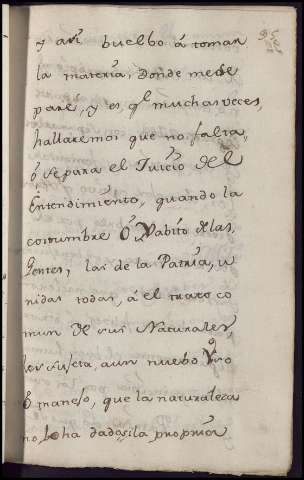 y asi buelbo á tomar
la materia, Donde me de
pare, y es, q.l muchas veces,
hallaremos que no falta,
ó se para el Juicio del
Entendimiento, quando la
costumbre Ó Habito delas,
Gentes, las de la Patria, u
nidas todas, á el trato co
mun de sus Naturales,
les sujeta, aun nuebo Uso
Ó manejo, que la naturaleza
no, lo ha dado; i la proprior